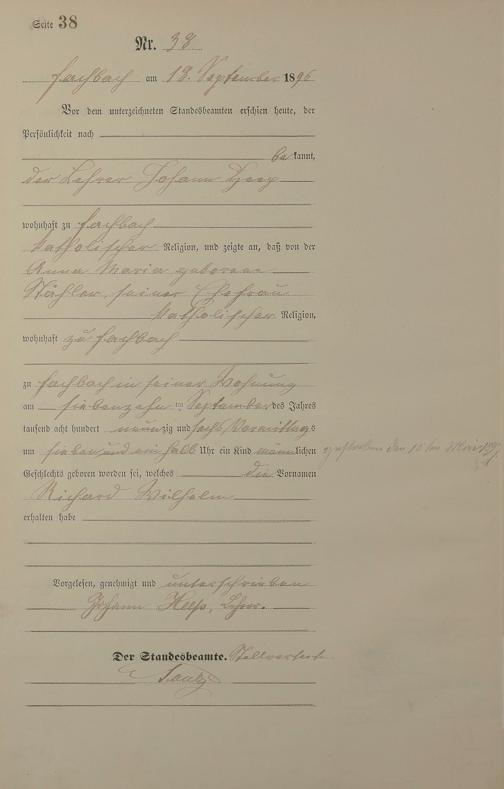 Seite 38
Nr. 38
Fachbach am 18. September 1896
Vor dem unterzeichneten Standesbeamten erschien heute, der
Persönlichkeit nach
bekannt,
der Lehrer Johann Heep
wohnhaft zu Fachbach
katholischer Religion, und zeigte an, daß von der
Anna Maria geborene
Stähler, seiner Ehefrau
katholischer Religion,
wohnhaft zu Fachbach
zu Fachbach in seiner Wohnung
am siebenzehn ten September des Jahres
tausend acht hundert neunzig und sechs Vormittags
um sieben und ein halb Uhr ein Kind männlichen
Geschlechts geboren worden sei, welches die Vornamen
Richard Wilhelm
erhalten habe
gestorben den 15ten März
Vorgelesen, genehmigt und unterschrieben
Johann Heep, Lehrer.
Der Standesbeamte.